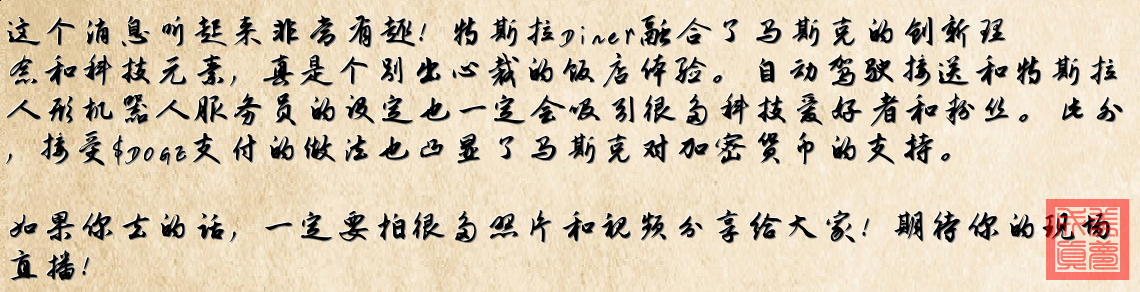 这个消息听起来非常有趣！特斯拉Diner融合了马斯克的创新理
念和科技元素，真是个别出心裁的饭店体验。自动驾驶接送和特斯拉
人形机器人服务员的设定也一定会吸引很多科技爱好者和粉丝。此外
，接受$DOGE支付的做法也凸显了马斯克对加密货币的支持。
如果你去的话，一定要拍很多照片和视频分享给大家！期待你的现场
直播！